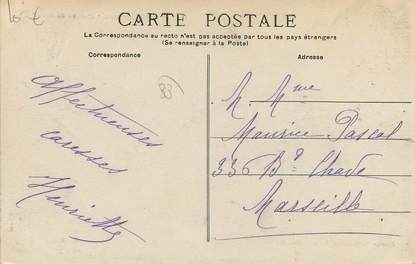 16 €
CARTE POSTALE
La Correspondance au recto n'est pas acceptée par tous les pays étrangers
(Se renseigner à la Poste)
Correspondance
Adresse
33
Affectueuses
caresses
Henriette
M. Mme
Maurice Pascal
336 Bd Chave
Marseille